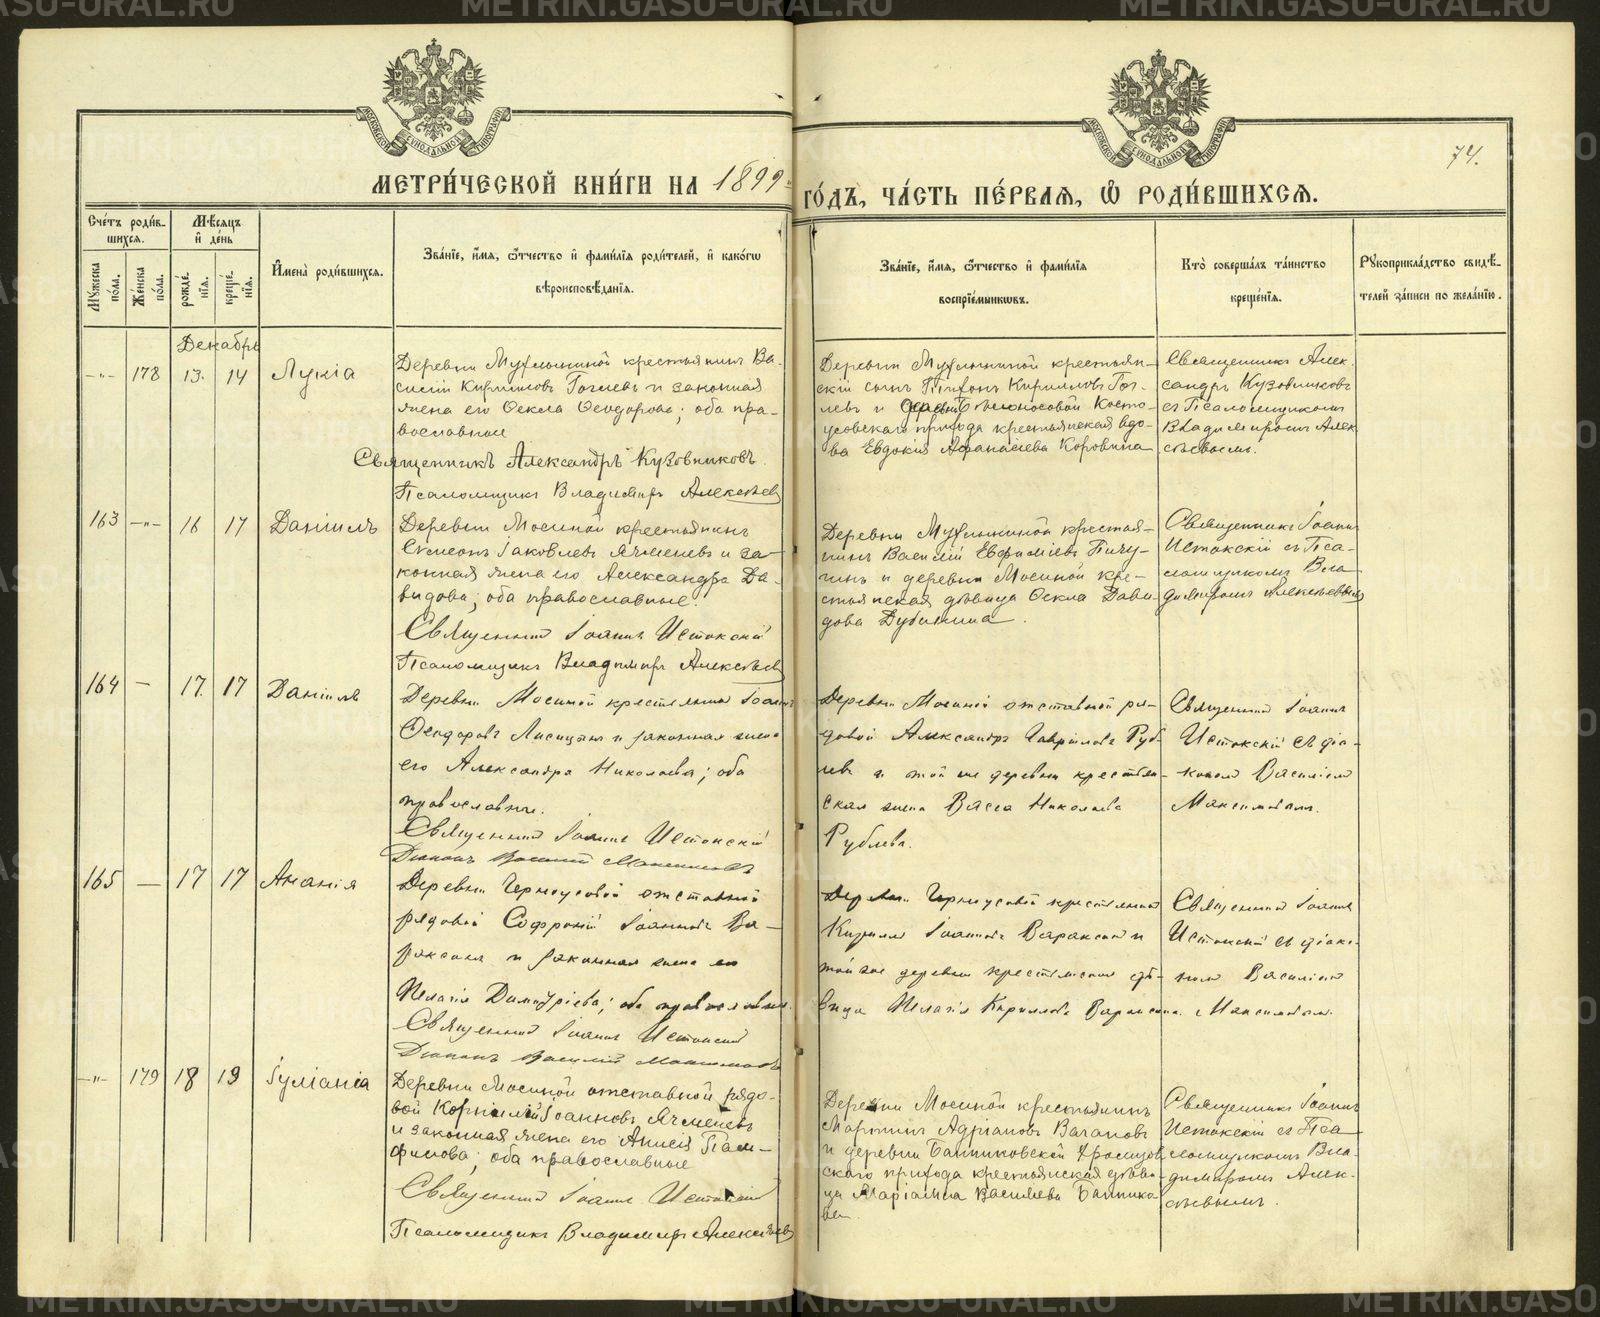 METRIKI.GASU-URAL.RU
МОСКОВСКОЙ СѴНОДАЛЬНОЙ ТИПОГРАФІИ
74.
МЕТРИ́ЧЕСКОЙ КНИ́ГИ НА 1899 ГО́ДЪ, ЧА́СТЬ ПЕ́РВАЯ, Ѡ РОДИ́ВШИХСЯ.
Сче́тъ роди́вшихся.
Мѣ́сяцъ и де́нь
Мꙋ́жеска по́ла.
Же́нска по́ла.
рожде́нїя.
креще́нїя.
И҆мена̀ роди́вшихся.
Зва́нїе, и҆́мя, ѻ҆́тчество и҆ фами́лїя роди́телей, и҆ како́гѡ
вѣроисповѣ́данїя.
Зва́нїе, и҆́мя, ѻ҆́тчество и҆ фами́лїя
воспрїе́мникѡвъ.
Кто̀ соверша́лъ та́инство
креще́нїя.
Рꙋкоприкла́дство свидѣ́-
телей за́писи по жела́нїю.
Декабрь
-„- 178 13. 14 Лукіа
Деревни Мухлыниной крестьянинъ Ва-
силій Кирилловъ Гоглевъ и законная
жена его Ѳекла Ѳеодорова; оба пра-
вославные
Священникъ Александръ Кузовниковъ.
Псаломщикъ Владимиръ Алексѣевъ
Деревни Мухлыниной крестьян-
скій сынъ Кирилловъ Гог-
левъ и
прихода крестьянская вдо-
ва Евдокія Аѳанасіева Коровина
Священникъ Алек-
сандръ Кузовниковъ
съ Псаломщикомъ
Владимиромъ Алек-
сѣевымъ.
163 -„- 16 17 Даніилъ
Деревни Мосиной крестьянинъ
Симеонъ Іаковлевъ Ячменевъ и за-
конная жена его Александра Да-
видова; оба православные.
Священникъ Іоаннъ Истокскій
Псаломщикъ Владимиръ Алексѣевъ
Деревни Мухлыниной крестья-
нинъ Василій Евфиміевъ Пичу-
гинъ и деревни Мосиной кре-
стьянская дѣвица Ѳекла Дави-
дова Дубинина.
Священникъ Іоаннъ
Истокскій съ Пса-
ломщикомъ Вла-
димиромъ Алексѣевымъ
164 — 17. 17 Даніилъ
Деревни Мосиной крестьянинъ Іоаннъ
Ѳеодоровъ Лисицынъ и законная жена
его Александра Николаева; оба
православные.
Священникъ Іоаннъ Истокскій
Діаконъ Василій Максимовъ
Деревни Мосиной отставной ря-
довой Александръ Гавріиловъ Руб-
левъ и той же деревни крестьян-
ская жена Васса Николаева
Рублева.
Священникъ Іоаннъ
Истокскій съ діа-
кономъ Василіемъ
Максимовымъ.
165 — 17 17 Ананія
Деревни Черноусовой отставной
рядовой Софроній Іоанновъ Ва-
раксинъ и законная жена его
Пелагія Димитріева; оба православные.
Священникъ Іоаннъ Истокскій
Діаконъ Василій Максимовъ
Деревни Черноусовой крестьянинъ
Кириллъ Іоанновъ Вараксинъ и
той же деревни крестьянская дѣ-
вица Пелагія Кириллова Вараксина.
Священникъ Іоаннъ
Истокскій съ діако-
номъ Василіемъ
Максимовымъ.
-„- 179 18 19 Іуліанія
Деревни Мосиной отставной рядо-
вой Корнилій Іоанновъ Ячменевъ
и законная жена его Анисія Пам-
филова; оба православные
Священникъ Іоаннъ Истокскій
Псаломщикъ Владимиръ Алексѣевъ
Деревни Мосиной крестьянинъ
Мартинъ Адріановъ Вагановъ
и деревни Банниковской
скаго прихода крестьянская дѣви-
ца Маріамна Василіева Баннико-
ва
Священникъ Іоаннъ
Истокскій съ Пса-
ломщикомъ Вла-
димиромъ Алек-
сѣевымъ.
METRIKI.GASU-URAL.RU